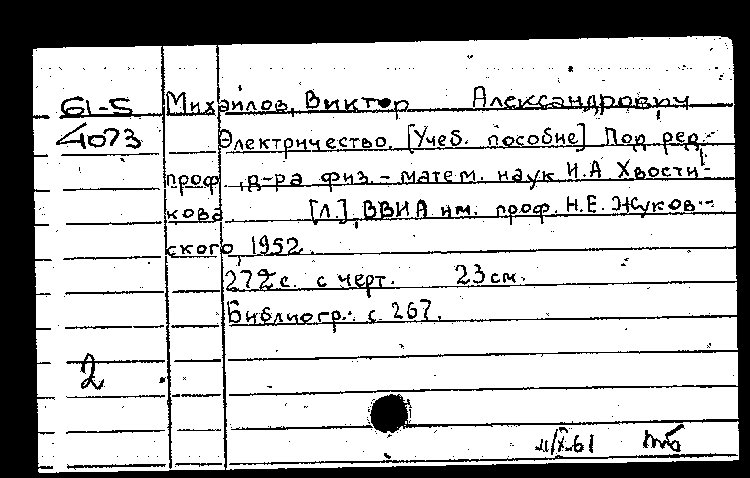 61-5 Михайлов, Виктор Александрович
4073 Электричество. [Учеб. пособие] Под ред.
проф., д-ра физ.-матем. наук И.А Хвости-
кова. [Л.], ВВИА им. проф. Н.Е. Жуков-
ского, 1952.
272 с. с черт. 23 см.
Библиогр.: с. 267.
2